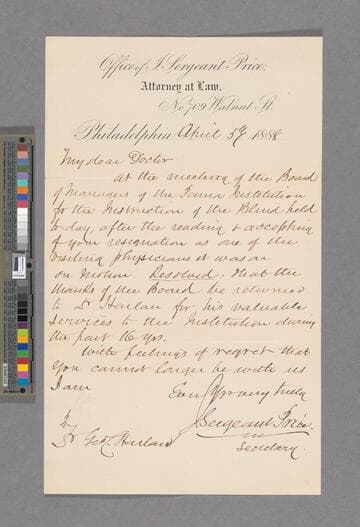 Office of J. Sergeant Price.
Attorney at Law.
No. 709 Walnut St.
Philadelphia April 5th 1888
My dear Doctor
At the meeting of the Board
of Managers of the Penna Institution
for the Instruction of the Blind held
to day, after the reading & accepting
of your resignation as one of the
visiting physicians it was on
on motion Resolved. That the
thanks of the Board be returned
to Dr Harlan for his valuable
services to the Institution during
the past 16 yrs.
With feelings of regret that
you cannot longer be with us
I am
Ever Yr very truly
J Sergeant Price
Secretary
To
Dr Geo. C. Harlan